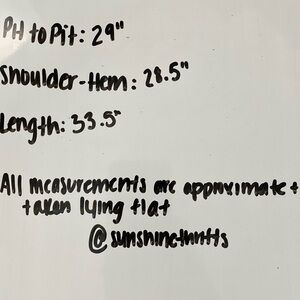 Pit to Pit: 29"
Shoulder-Hem: 28.5"
Length: 33.5"
All measurements are approximate +
taken lying flat
@sunshinethrifts